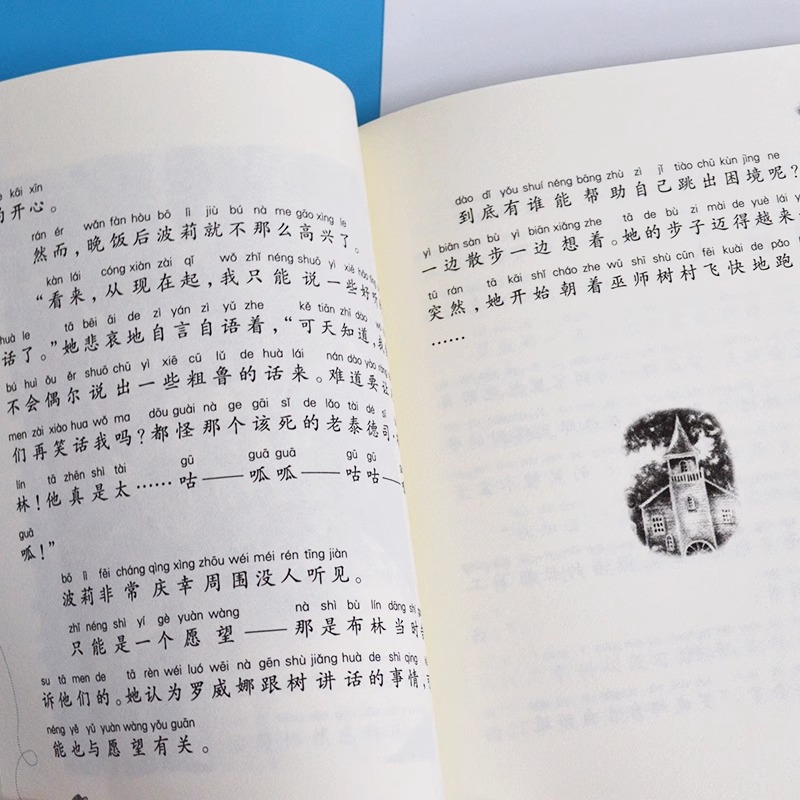 ē kāi xīn
的开心。
rán ér wǎn fàn hòu bō lì jiù bú nà me gāo xìng le
然而，晚饭后波莉就不那么高兴了。
kàn lái cóng xiàn zài qǐ wǒ zhǐ néng shuō yì xiē hǎo
“看来，从现在起，我只能说一些好
huà le tā bēi āi de zì yán zì yǔ zhe kě tiān zhī dào
话了。”她悲哀地自言自语着，“可天知道，
bú huì ǒu ěr shuō chū yì xiē cū lǔ de huà lái nán dào yào
不会偶尔说出一些粗鲁的话来。难道要让
men zài xiào hua wǒ ma dōu guài nà ge gāi sǐ de lǎo tài dé sī
们再笑话我吗？都怪那个该死的老泰德司
lín tā zhēn shì tài gū guā guā gū gū
林！他真是太……咕——呱呱——咕咕——
guā
呱！”
bō lì fēi cháng qìng xìng zhōu wéi méi rén tīng jiàn
波莉非常庆幸周围没人听见。
zhǐ néng shì yí gè yuàn wàng nà shì bù lín dāng shí
只能是一个愿望——那是布林当时
su tā men de tā rèn wéi luó wēi nà gēn shù jiǎng huà de shì qing
诉他们的。她认为罗威娜跟树讲话的事情，
néng yě yǔ yuàn wàng yǒu guān
能也与愿望有关。
dào dǐ yǒu shuí néng bāng zhù zì jǐ tiào chū kùn jìng ne
到底有谁能帮助自己跳出困境呢？
yì biān sàn bù yì biān xiǎng zhe tā de bù zi mài de yuè lái
一边散步一边想着。她的步子迈得越来
tū rán tā kāi shǐ cháo zhe wū shī shù cūn fēi kuài de pǎo
突然，她开始朝着巫师树村飞快地跑
……